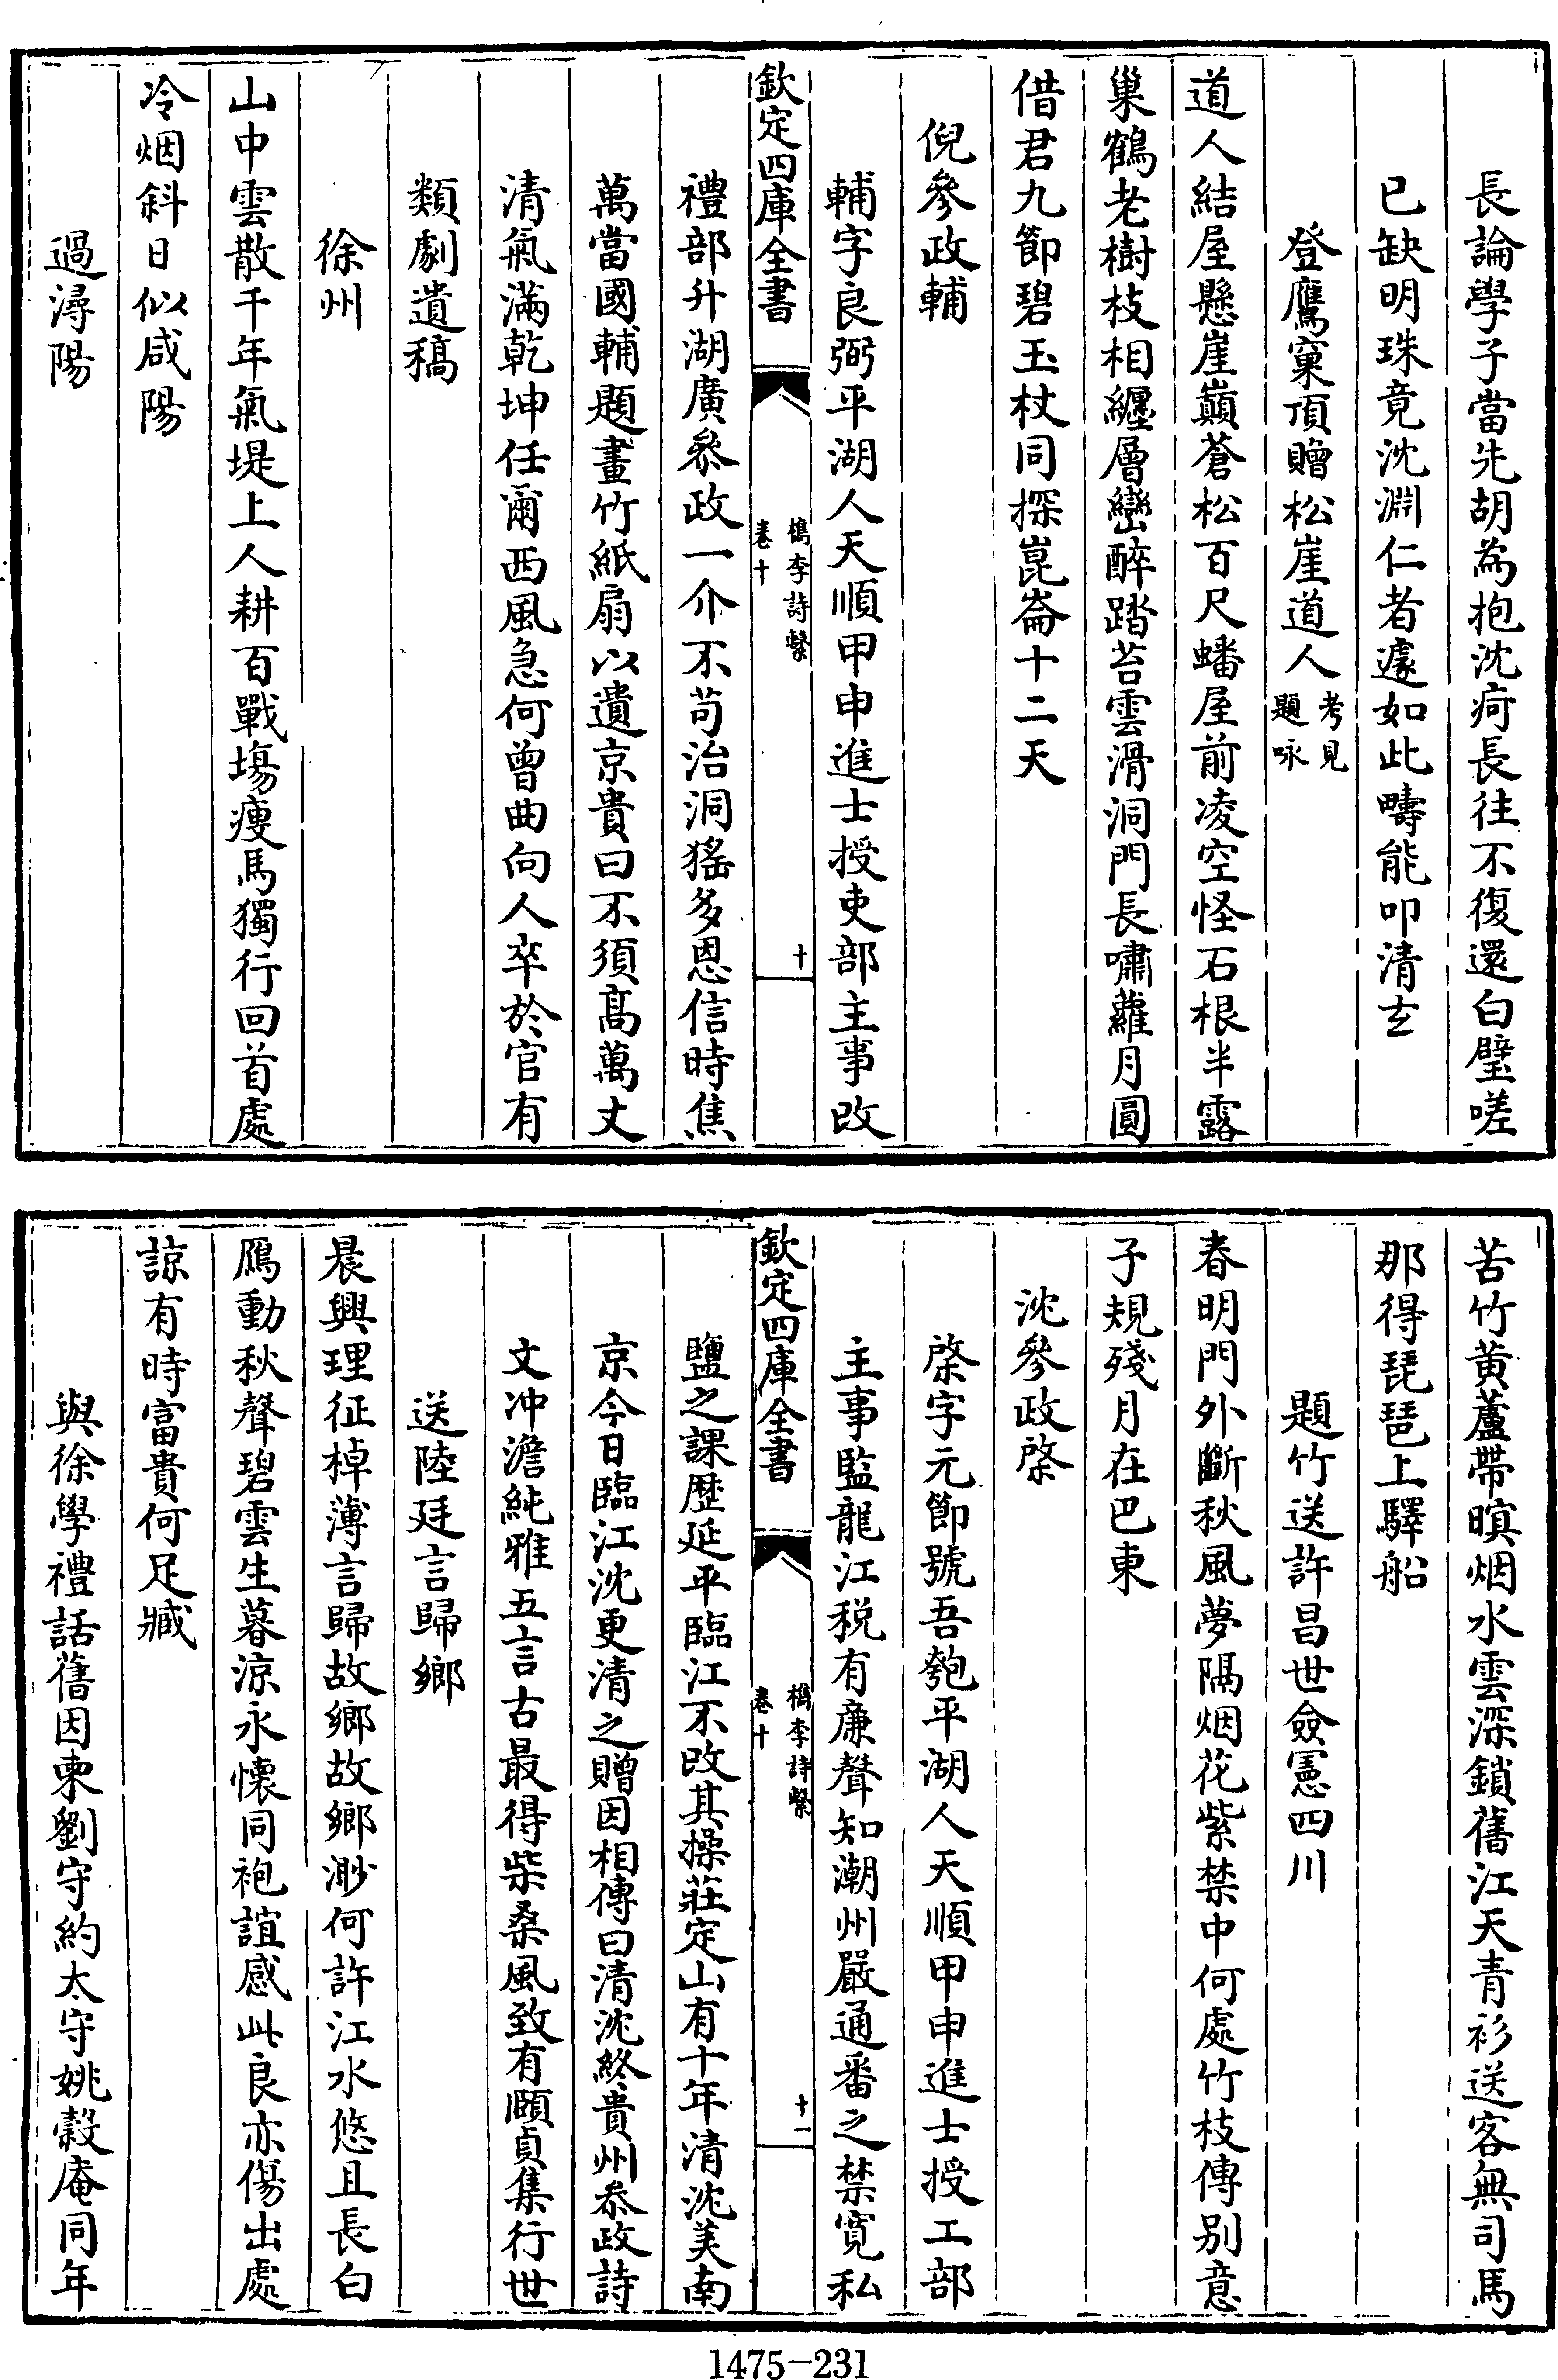 長論學子當先胡為抱沈疴長往不復還白璧嗟
已缺明珠竟沈淵仁者遽如此疇能叩清玄
登鷹窠頂贈松崖道人考見題咏
道人結屋懸崖巔蒼松百尺蟠屋前凌空怪石根半露
巢鶴老樹枝相纒層巒醉踏苔雲滑洞門長嘯蘿月圓
借君九節碧玉杖同探崑崙十二天
倪參政輔
輔字良弼平湖人天順甲申進士授吏部主事改
欽定四庫全書
檇李詩繫
卷十
十
禮部升湖廣叅政一介不茍治洞猺多恩信時焦
萬當國輔題畫竹紙扇以遺京貴曰不須髙萬丈
清氣滿乾坤任爾西風急何曾曲向人卒於官有
類劇遺稿
徐州
山中雲散千年氣堤上人耕百戰塲瘦馬獨行回首處
冷烟斜日似咸陽
過潯陽
苦竹黄蘆帶暝烟水雲深鎖舊江天青衫送客無司馬
那得琵琶上驛船
題竹送許昌世僉憲四川
春明門外斷秋風夢隔烟花紫禁中何處竹枝傳别意
子規殘月在巴東
沈參政棨
棨字元節號吾匏平湖人天順甲申進士授工部
主事監龍江税有亷聲知潮州嚴通番之禁寛私
欽定四庫全書
檇李詩繫
卷十
十一
鹽之課歴延平臨江不改其操莊定山有十年清沈美南
京今日臨江沈更清之贈因相傳曰清沈終貴州叅政詩
文冲澹純雅五言古最得柴桑風致有頤貞集行世
送陸廷言歸鄉
晨興理征棹薄言歸故鄉故鄉渺何許江水悠且長白
鴈動秋聲碧雲生暮涼永懷同袍誼感此良亦傷出處
諒有時富貴何足臧
與徐學禮話舊因柬劉守約太守姚穀庵同年
1475-231